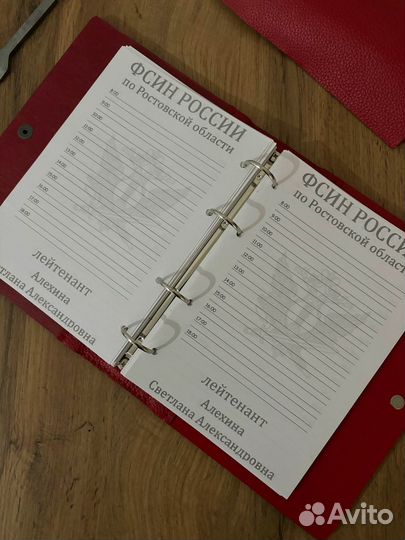 ФСИН РОССИИ
по Ростовской области
8:00
9:00
10:00
11:00
12:00
13:00
14:00
15:00
16:00
17:00
18:00
лейтенант
Алехина
Светлана Александровна
ФСИН РОССИИ
по Ростовской области
8:00
9:00
10:00
11:00
12:00
13:00
14:00
15:00
16:00
17:00
18:00
лейтенант
Алехина
Светлана Александровна
Avito